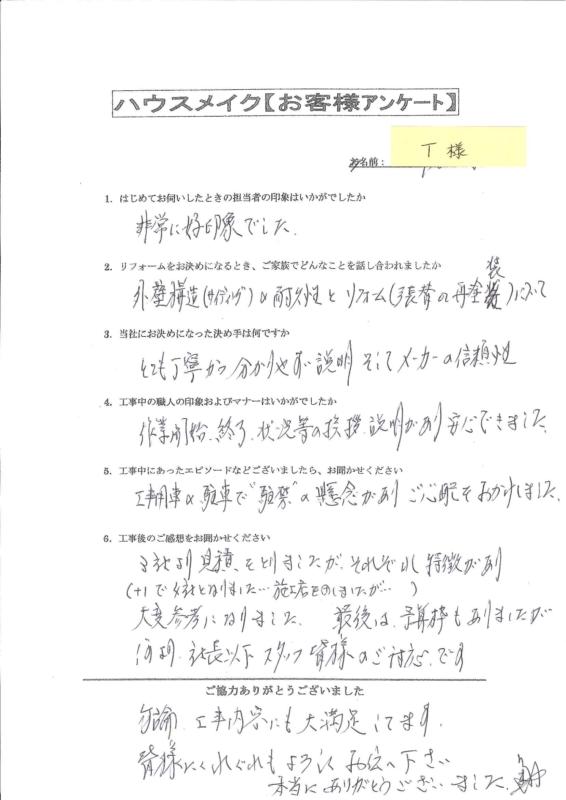 ハウスメイク【お客様アンケート】
お名前： T様
1. はじめてお伺いしたときの担当者の印象はいかがでしたか
非常に好印象でした.
2. リフォームをお決めになるとき、ご家族でどんなことを話し合われましたか
外壁構造(サイディング)の耐久性とリフォーム(張替の再塗装)について
3. 当社にお決めになった決め手は何ですか
とても丁寧かつ分かりやすい説明 そしてメーカーの信頼性
4. 工事中の職人の印象およびマナーはいかがでしたか
作業開始、終了、状況等の挨拶、説明があり安心できました.
5. 工事中にあったエピソードなどございましたら、お聞かせください
工事用車の駐車で"駐禁"の懸念があり ご心配をおかけしました.
6. 工事後のご感想をお聞かせください
3社より見積、をとりましたが、それぞれ特徴があり
(+1で4社となりました…施工店を
大変参考になりました. 最後は、予算枠もありましたが
何より、社長以下スタッフ皆様のご対応、です
ご協力ありがとうございました
勿論、工事内容にも大満足してます.
皆様にくれぐれもよろしくお伝え下さい
本当にありがとうございました.